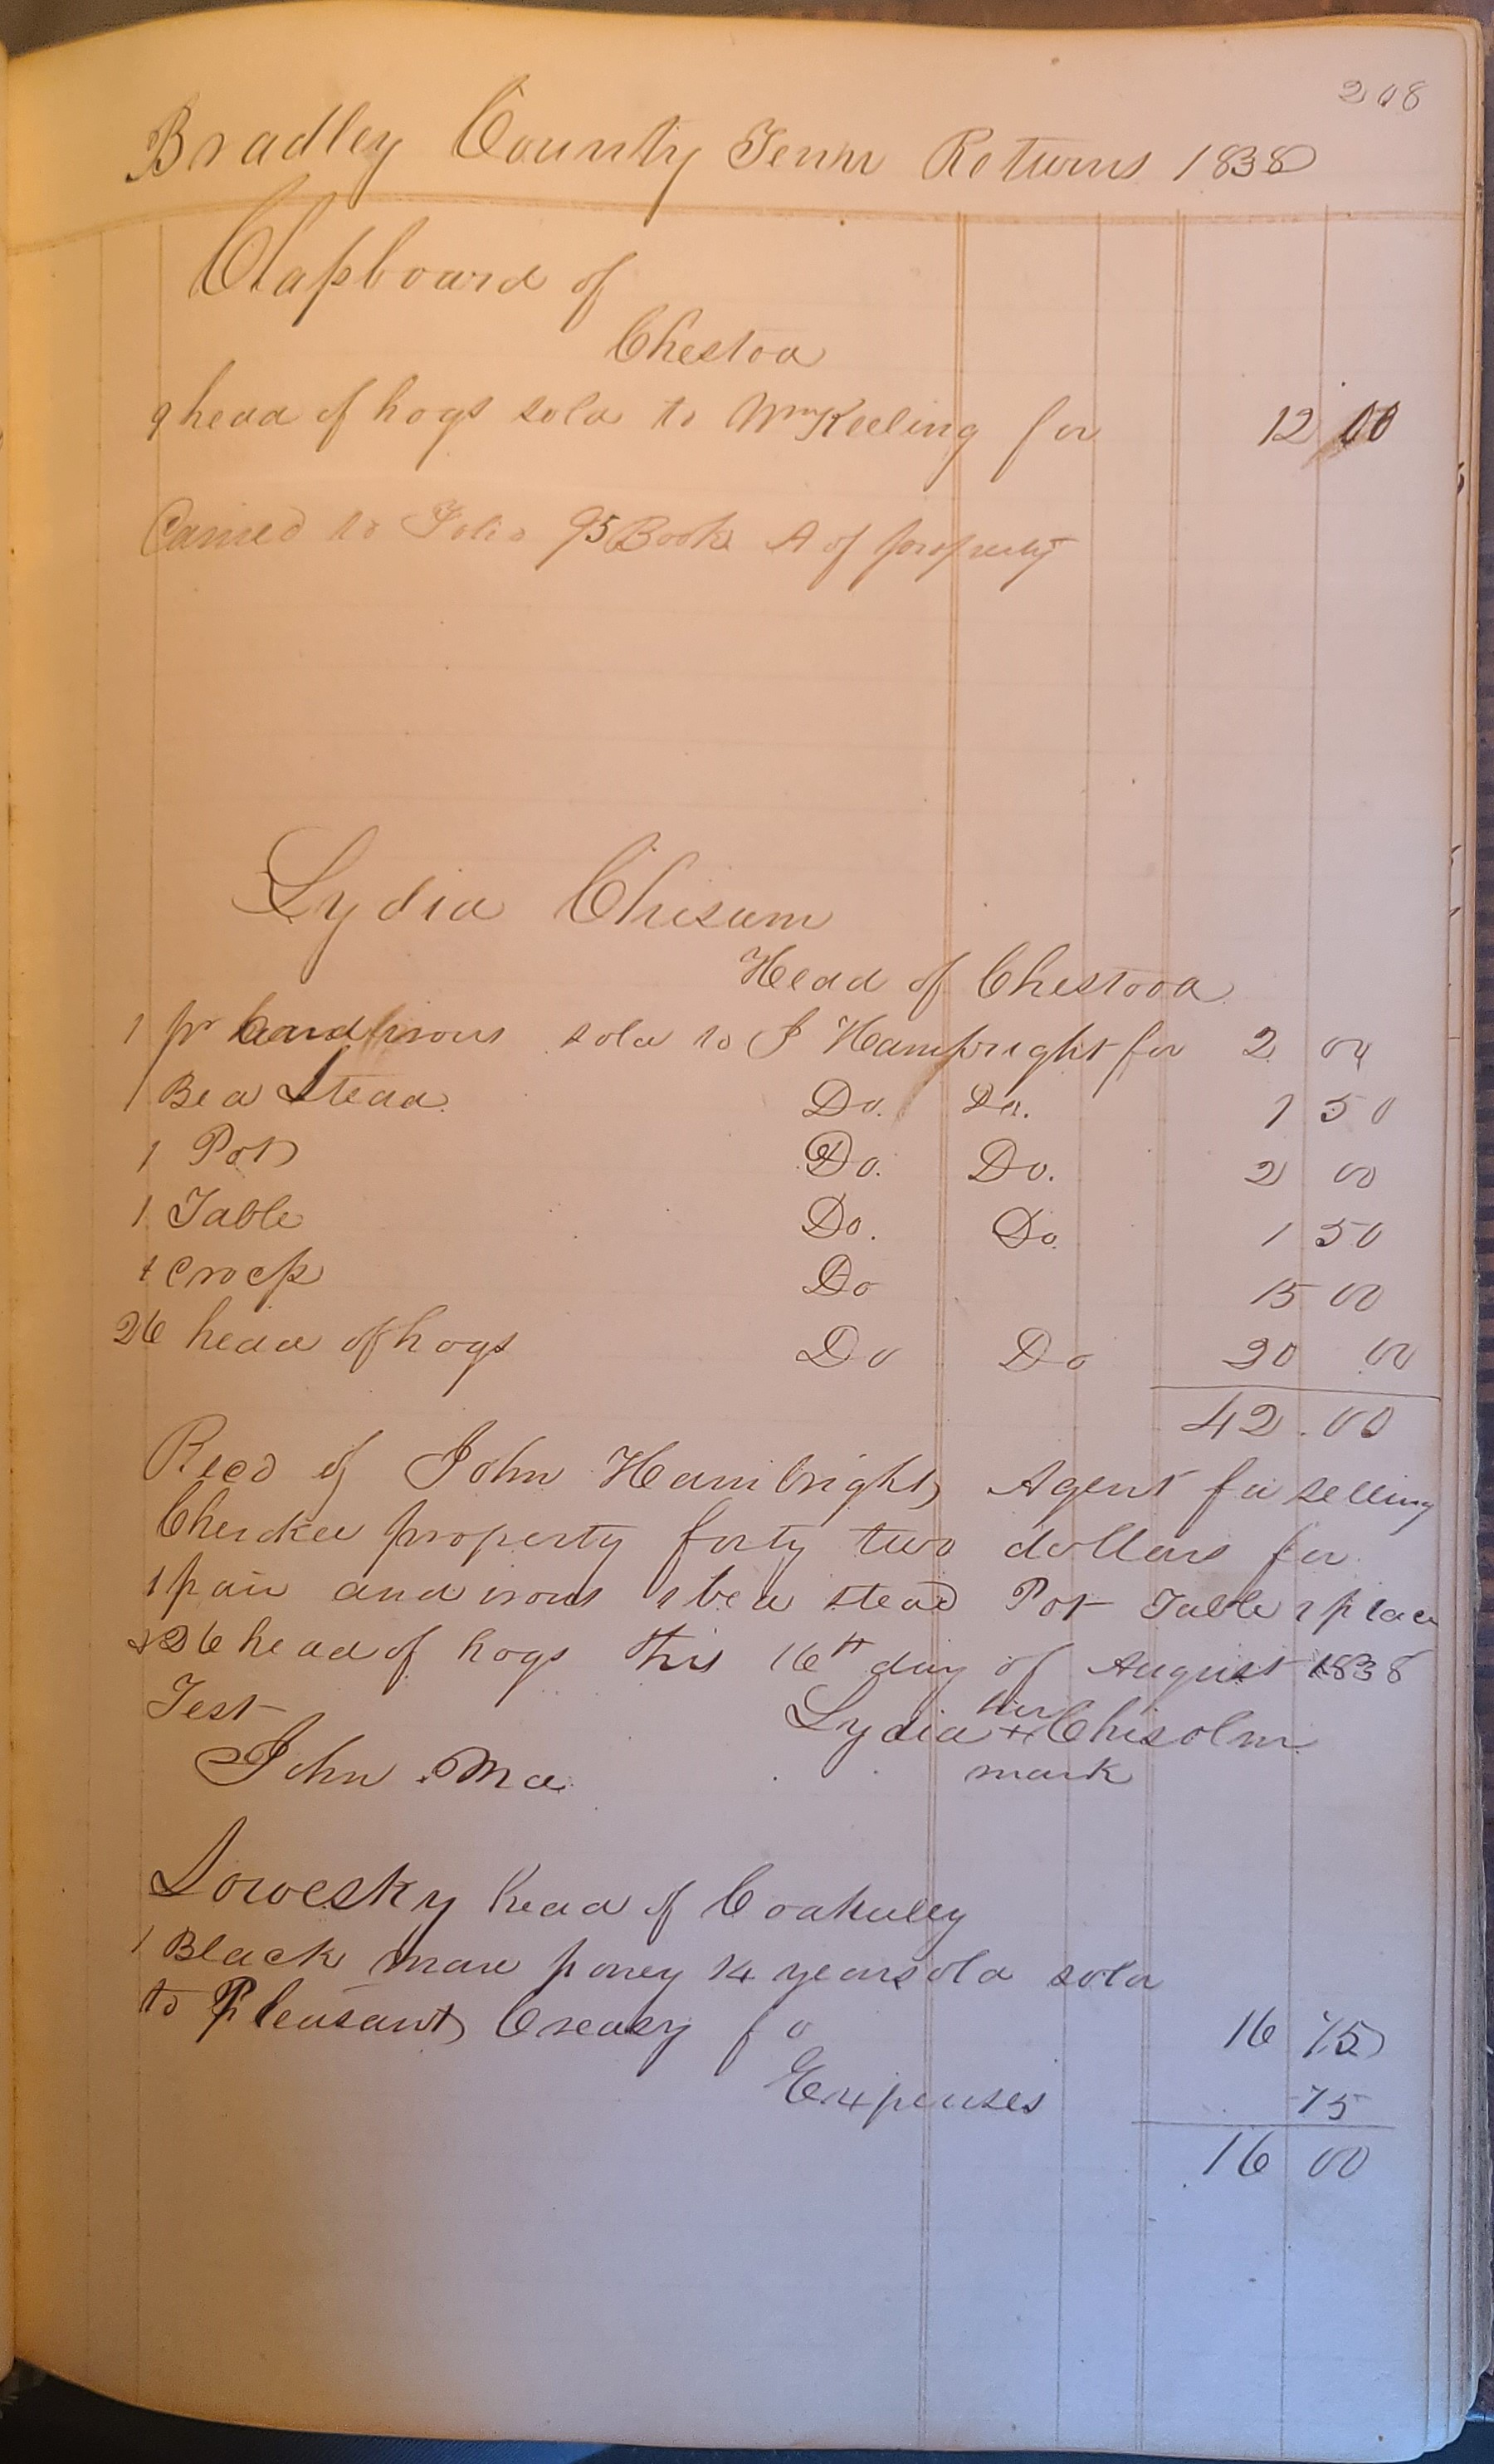 208
Bradley County Tenn Returns 1838
Clapboard of
Chestoa
9 head of hogs sold to Wm Keeling for 12 00
Carried to Folio 95 Book A of property
Lydia Chisum
Head of Chestooa
1 pr handirons sold to J Hambright for 2 00
1 Bed Stead Do. Do. 1 50
1 Pot Do. Do. 2 00
1 Table Do. Do 1 50
1 Crop Do 15 00
26 head of hogs Do Do 20 00
42.00
Recd of John Hambright Agent for selling
Cherokee property forty two dollars for
1 pair andirons 1 bed stead Pot Table 1 place
& 26 head of hogs this 16th day of August 1838
Test
her
Lydia + Chisolm
John Ma mark
Sowesky head of Coahulley
1 Black mare poney 14 years old sold
to Pleasant Creasy fo 16 75
Expenses 75
16 00